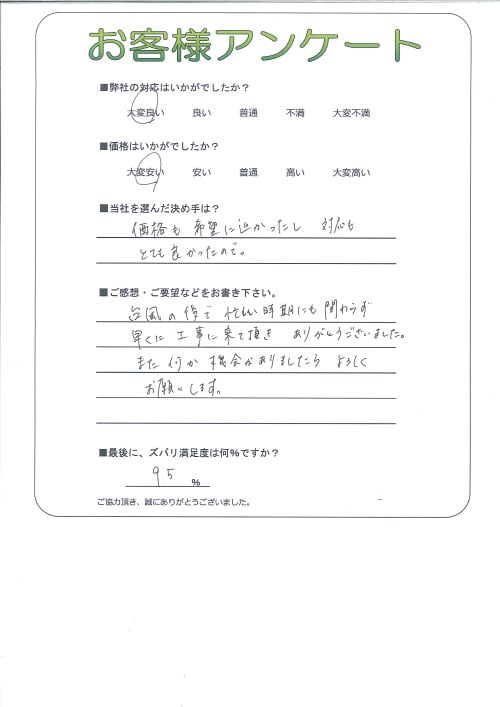 お客様アンケート
■弊社の対応はいかがでしたか？
大変良い　良い　普通　不満　大変不満
■価格はいかがでしたか？
大変安い　安い　普通　高い　大変高い
■当社を選んだ決め手は？
価格も希望に近かったし　対応も
とても良かったので。
■ご感想・ご要望などをお書き下さい。
台風の後で忙しい時期にも関わらず
早くに工事に来て頂き　ありがとうございました。
また何か機会がありましたら　よろしく
お願いします。
■最後に、ズバリ満足度は何%ですか？
95 %
ご協力頂き、誠にありがとうございました。